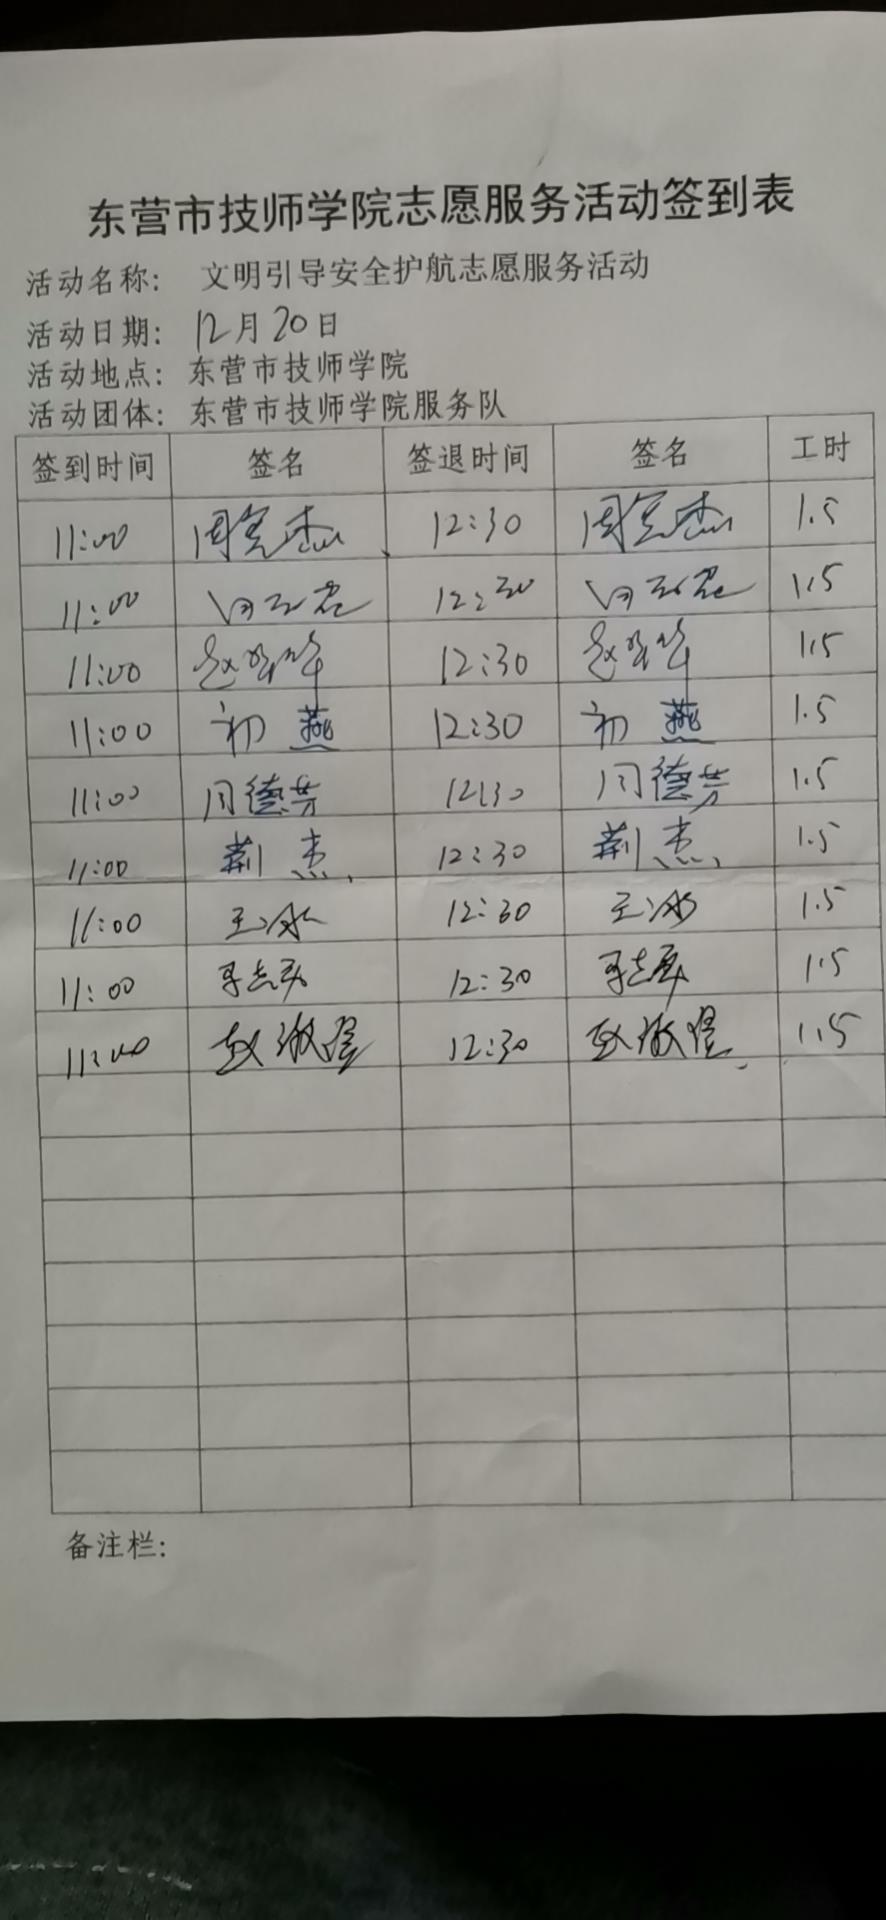 东营市技师学院志愿服务活动签到表
活动名称: 文明引导安全护航志愿服务活动
活动日期: 12月20日
活动地点: 东营市技师学院
活动团体: 东营市技师学院服务队
签到时间 签名 签退时间 签名 工时
11:00 12:30 1.5
11:00 12:30 1.5
11:00 12:30 1.5
11:00 初燕 12:30 初燕 1.5
11:00 闫德芳 12:30 闫德芳 1.5
11:00 荆杰 12:30 荆杰 1.5
11:00 王冰 12:30 王冰 1.5
11:00 12:30 1.5
11:00 12:30 1.5
备注栏: